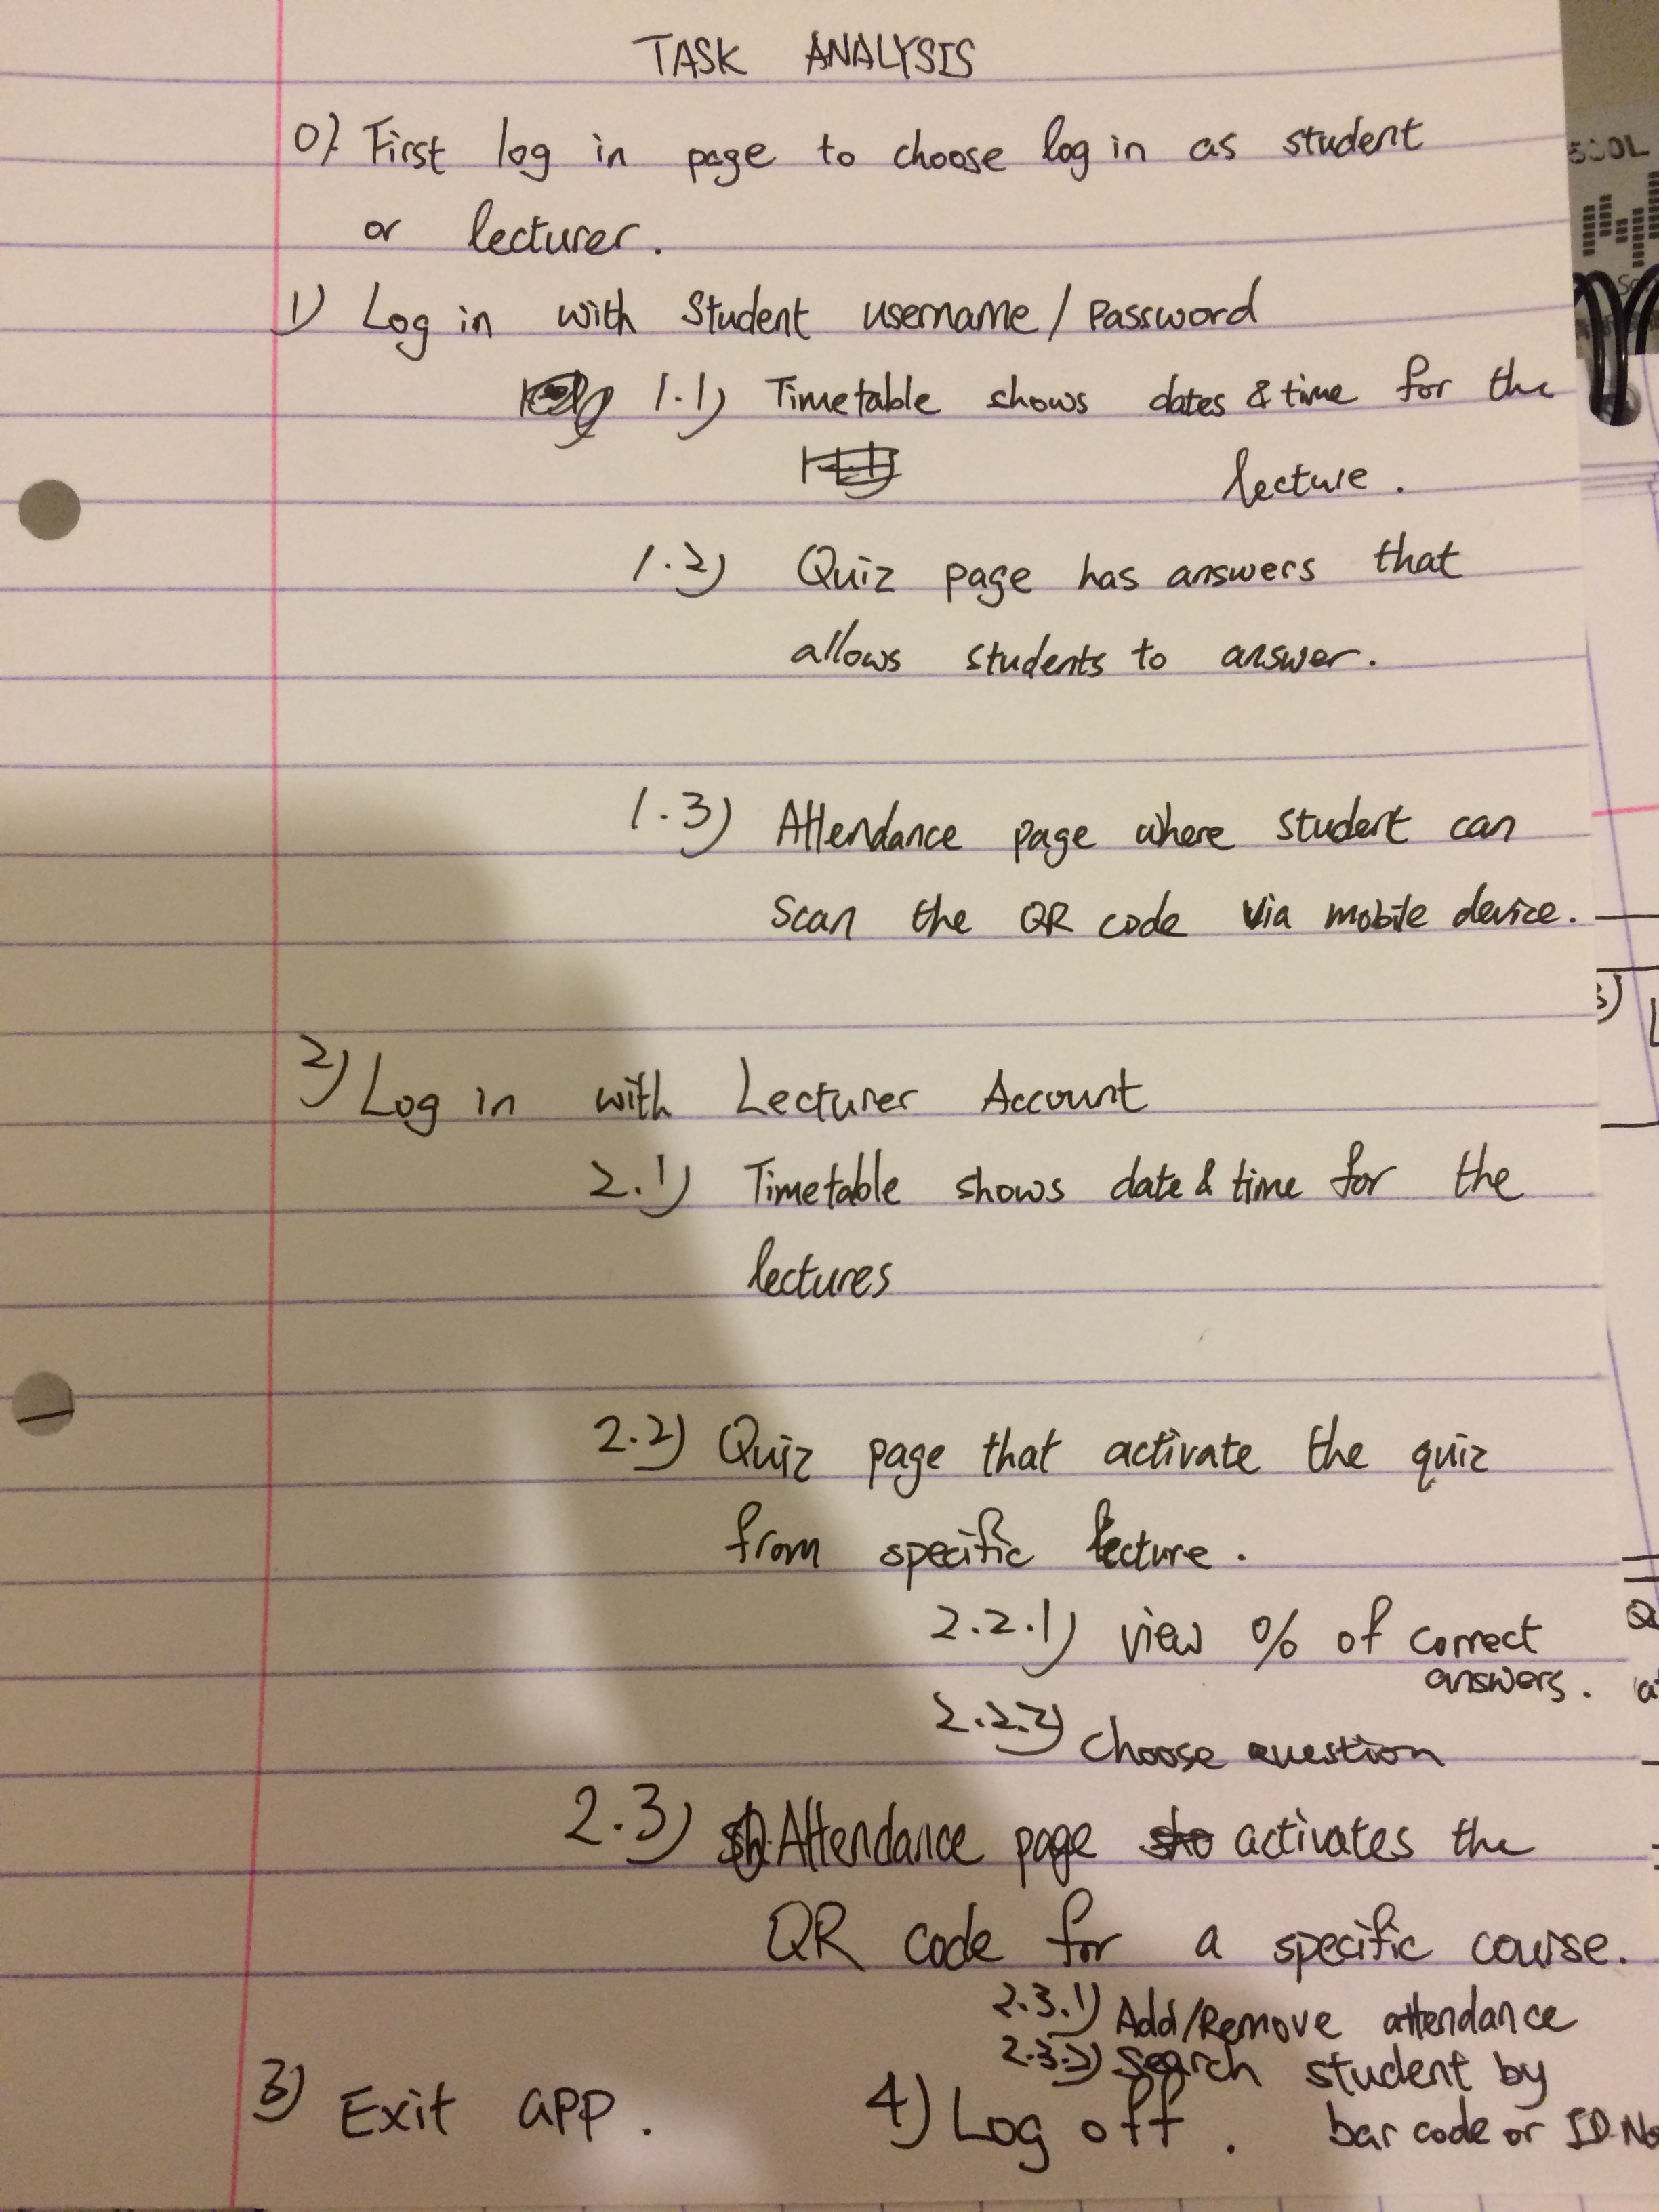 TASK ANALYSIS
0) First log in page to choose log in as student
or lecturer.
1) Log in with Student username/Password
1.1) Timetable shows dates & time for the
lecture.
1.2) Quiz page has answers that
allows students to answer.
1.3) Attendance page where student can
scan the QR code via mobile device.
2) Log in with Lecturer Account
2.1) Timetable shows date & time for the
lectures
2.2) Quiz page that activate the quiz
from specific lecture.
2.2.1) view % of correct
answers.
2.2.2) choose question
2.3) Attendance page activates the
QR code for a specific course.
2.3.1) Add/Remove attendance
2.3.2) Search student by
bar code or ID.No
3) Exit app.
4) Log off.